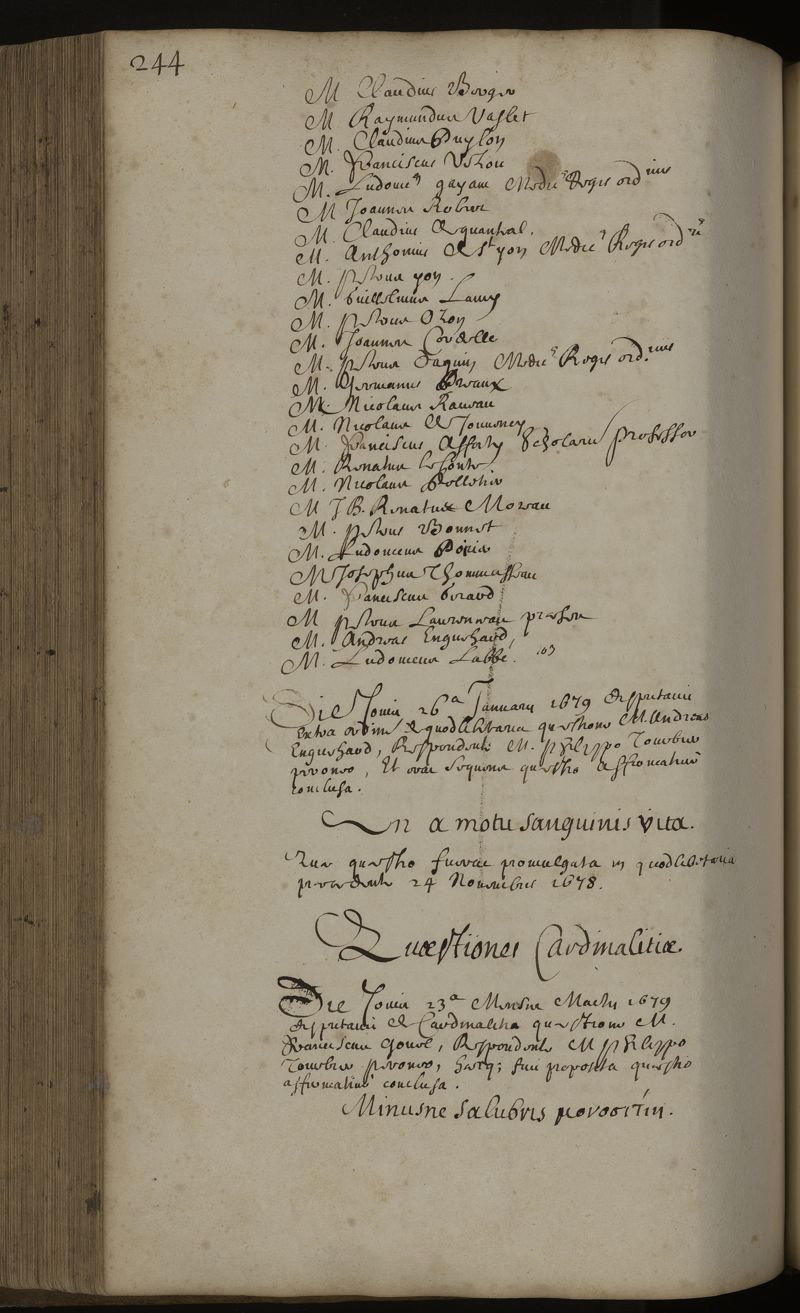 244
M Claudius Berger
M Raymundus Vaslet
M. Claudius Puylon
M. Franciscus
M. Ludovic' gayant Medic' Regis ord
M Joannes Robert
M Claudius Dequanteal.
M. Anthonius De St yon Medic' Regis ord
M. petrus yon.
M. Guillelmus Lamy
M. petrus Ozon
M. Joannes Cordelle
M. petrus Daquin Medic' Regis ord.
M. Germanus Preaux
M. Nicolaus
M. Nicolaus De Jouvency
M. Franciscus Afforty Scholarum professor
M. Renatus le Conte
M. Nicolaus
M J B. Renatus Moreau
M. petrus Bonnet
M. Ludovicus
M Josephus Thomasseau
M. Franciscus
M petrus
M. Andreas Enguehard,
M. Ludovicus Labbé. 103
Die Jovis 26ª Januarii 1679 disputavit
Extra ordine de quodlibetaria questione M. Andreas
Enguehard, Respondente M. philippo
, Et erat sequens questio affirmative
conclusa.
An a motu sanguinis vita.
Que questio fuerat promulgata in quodlibetaria
precedente 24 Novembris 1678.
Quæstiones Cardinalitiæ.
Die Jovis 23ª Mensis Martii 1679
disputavit de Cardinalitia questione M.
Franciscus , Respondente M philippo
, hecq; fuit proposita questio
affirmative conclusa.
Minusne salubris